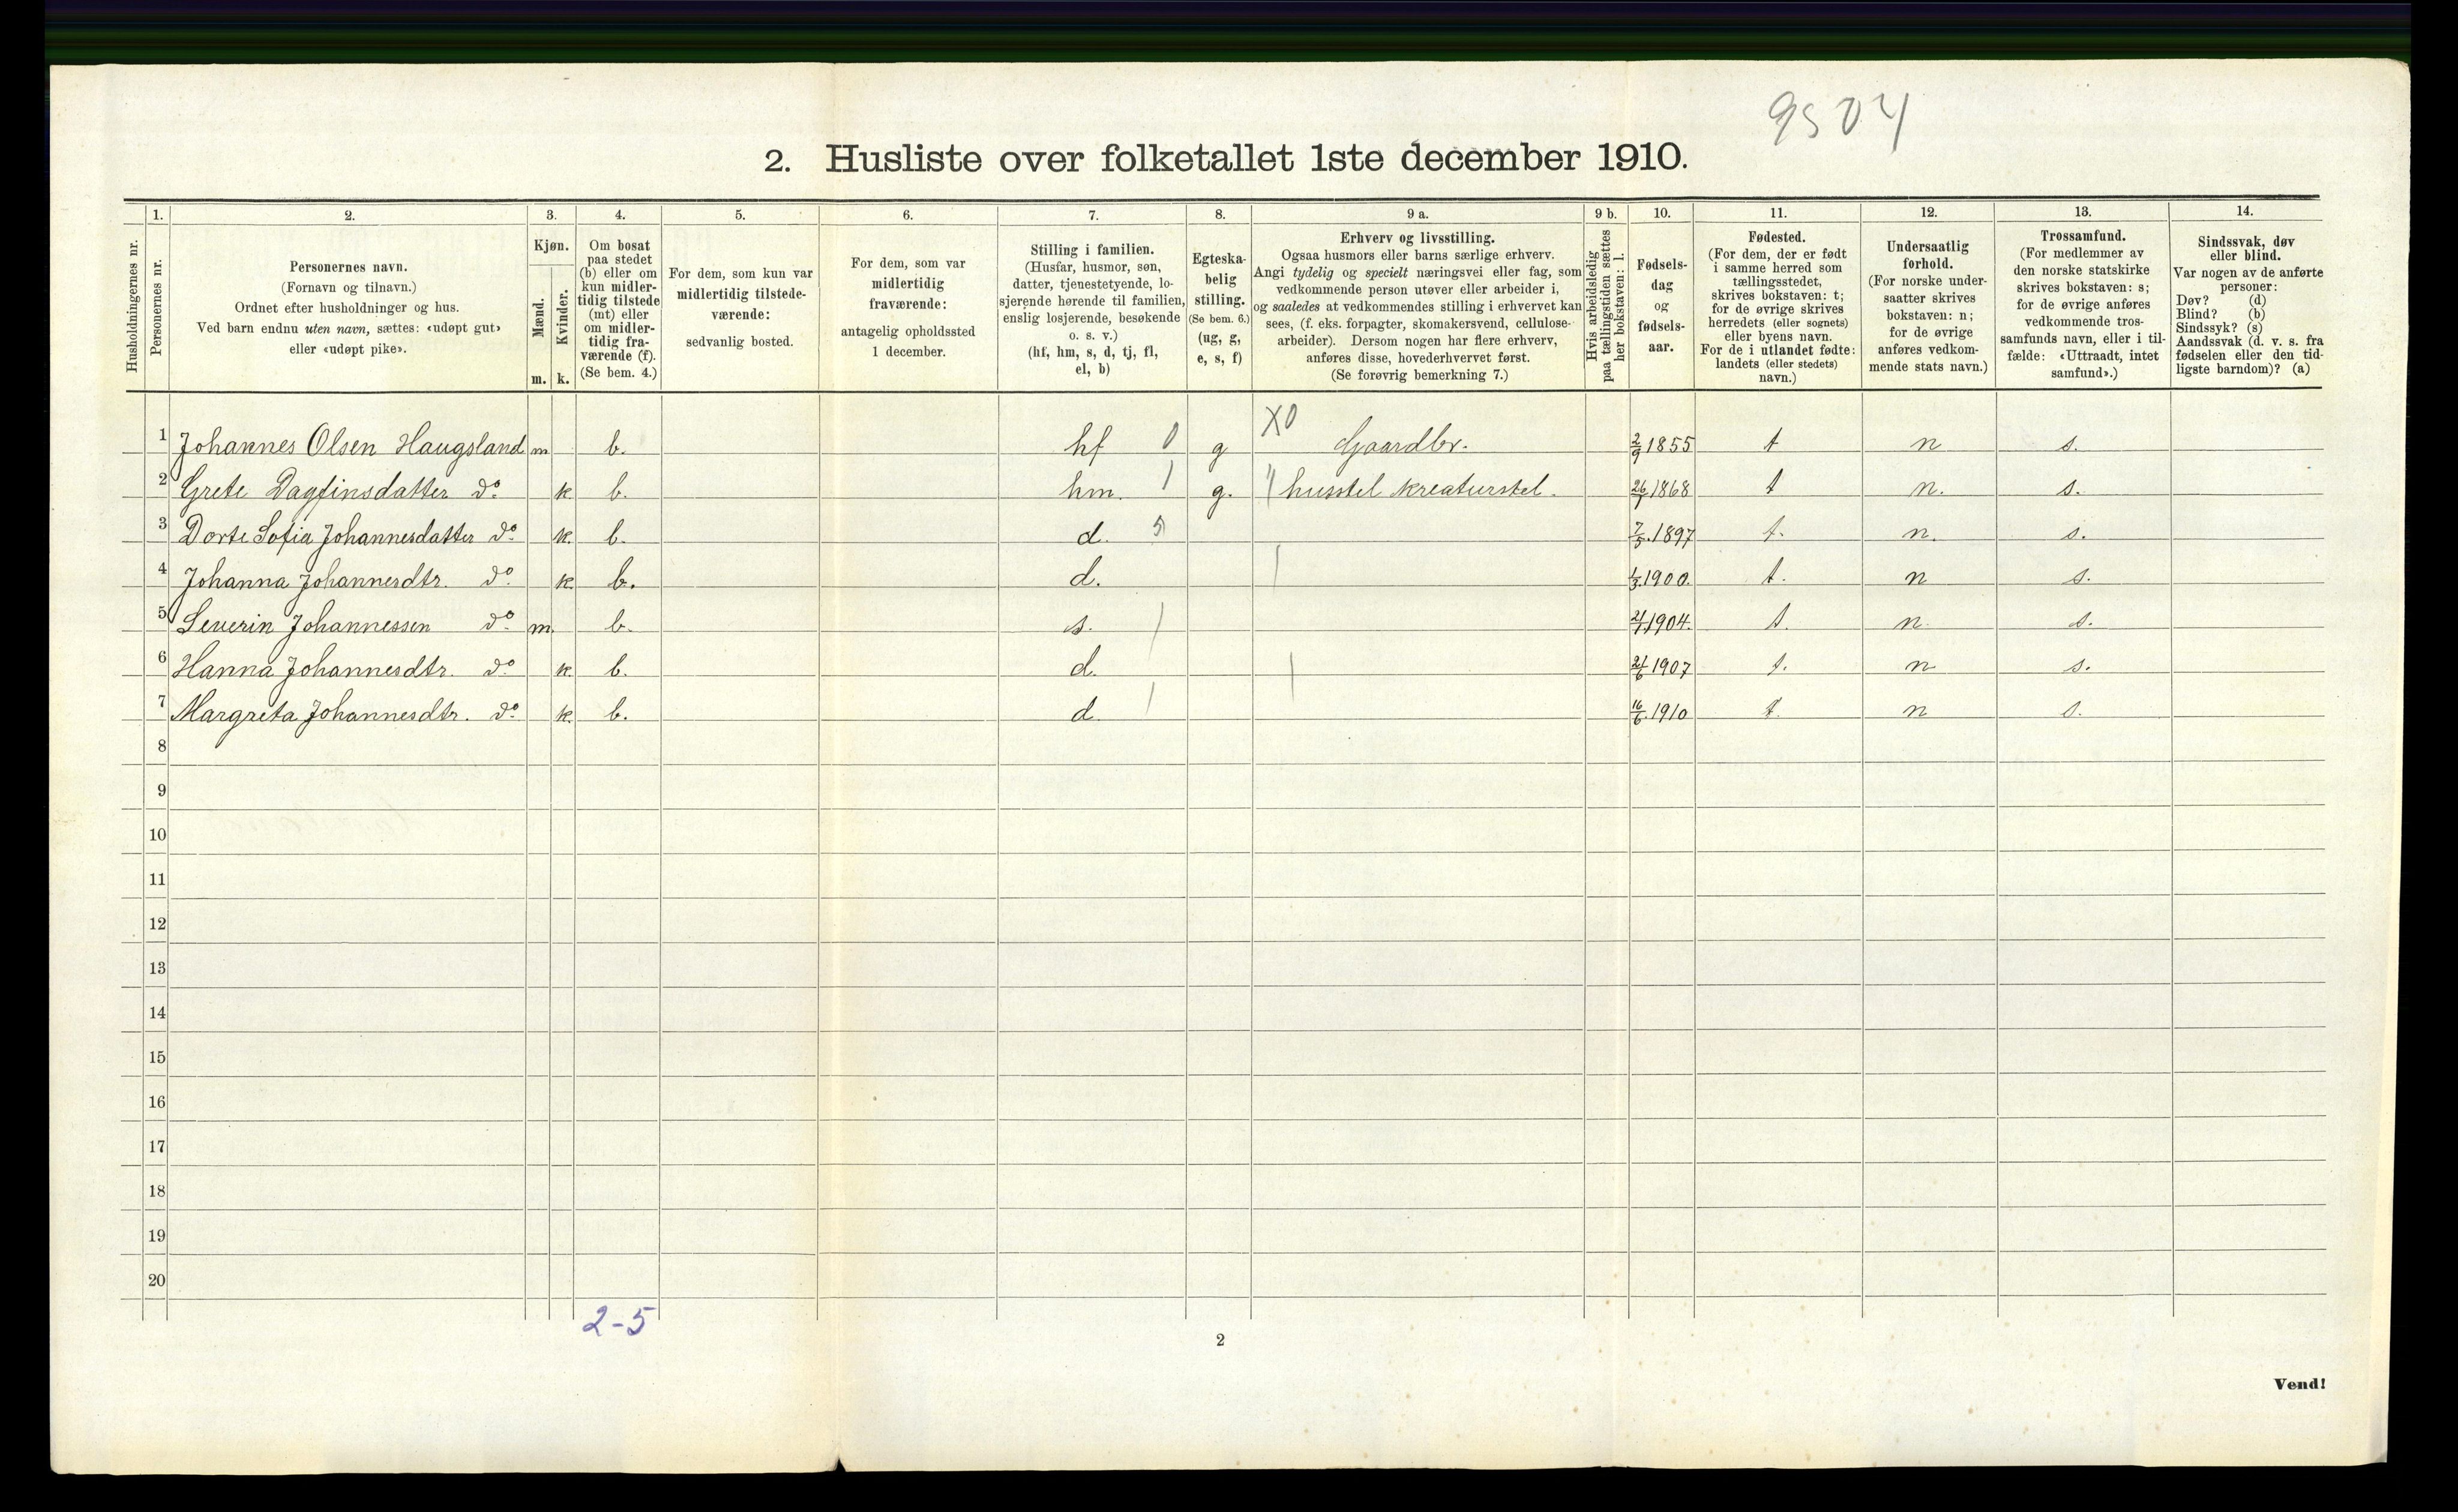 9504
2. Husliste over folketallet 1ste december 1910.
Husholdningernes nr.
1. Personernes nr.
2. Personernes navn.
(Fornavn og tilnavn.)
Ordnet efter husholdninger og hus.
Ved barn endnu uten navn, sættes: «udøpt gut»
eller «udøpt pike».
3. Kjøn.
Mænd. m.
Kvinder. k.
4. Om bosat
paa stedet
(b) eller om
kun midler-
tidig tilstede
(mt) eller
om midler-
tidig fra-
værende (f).
(Se bem. 4.)
5. For dem, som kun var
midlertidig tilstede-
værende:
sedvanlig bosted.
6. For dem, som var
midlertidig
fraværende:
antagelig opholdssted
1 december.
7. Stilling i familien.
(Husfar, husmor, søn,
datter, tjenestetyende, lo-
sjerende hørende til familien,
enslig losjerende, besøkende
o. s. v.)
(hf, hm, s, d, tj, fl,
el, b)
8. Egteska-
belig
stilling.
(Se bem. 6.)
(ug, g,
e, s, f)
9 a. Erhverv og livsstilling.
Ogsaa husmors eller barns særlige erhverv.
Angi tydelig og specielt næringsvei eller fag, som
vedkommende person utøver eller arbeider i,
og saaledes at vedkommendes stilling i erhvervet kan
sees, (f. eks. forpagter, skomakersvend, cellulose-
arbeider). Dersom nogen har flere erhverv,
anføres disse, hovederhvervet først.
(Se forøvrig bemerkning 7.)
9 b. Hvis arbeidsledig
paa tællingstiden sættes
her bokstaven: l.
10. Fødsels-
dag
og
fødsels-
aar.
11. Fødested.
(For dem, der er født
i samme herred som
tællingsstedet,
skrives bokstaven: t;
for de øvrige skrives
herredets (eller sognets)
eller byens navn.
For de i utlandet fødte:
landets (eller stedets)
navn.)
12. Undersaatlig
forhold.
(For norske under-
saatter skrives
bokstaven: n;
for de øvrige
anføres vedkom-
mende stats navn.)
13. Trossamfund.
(For medlemmer av
den norske statskirke
skrives bokstaven: s;
for de øvrige anføres
vedkommende tros-
samfunds navn, eller i til-
fælde: «Uttraadt, intet
samfund».)
14. Sindssvak, døv
eller blind.
Var nogen av de anførte
personer:
Døv? (d)
Blind? (b)
Sindssyk? (s)
Aandssvak (d. v. s. fra
fødselen eller den tid-
ligste barndom)? (a)
1 Johannes Olsen Haugsland m b. hf 0 g X0 Gaardbr. 2/9 1855 t n s.
2 Grete Dagfinsdatter do. k b. hm. 1 g. husstel kreaturstel. 26/7 1868 t n. s.
3 Dorte Sofia Johannesdatter do. k. b. d. 5 7/5. 1897 t. n. s.
4 Johanna Johannesdtr. do. k b. d. 1/3. 1900. t. n s.
5 Severin Johannessen do. m. b. s. 21/1 1904. t. n. s.
6 Hanna Johannesdtr. do. k. b. d. 21/6 1907 t. n s.
7 Margreta Johannesdtr. do. k. b. d. 16/6. 1910 t. n s.
8
9
10
11
12
13
14
15
16
17
18
19
20
2-5
2
Vend!